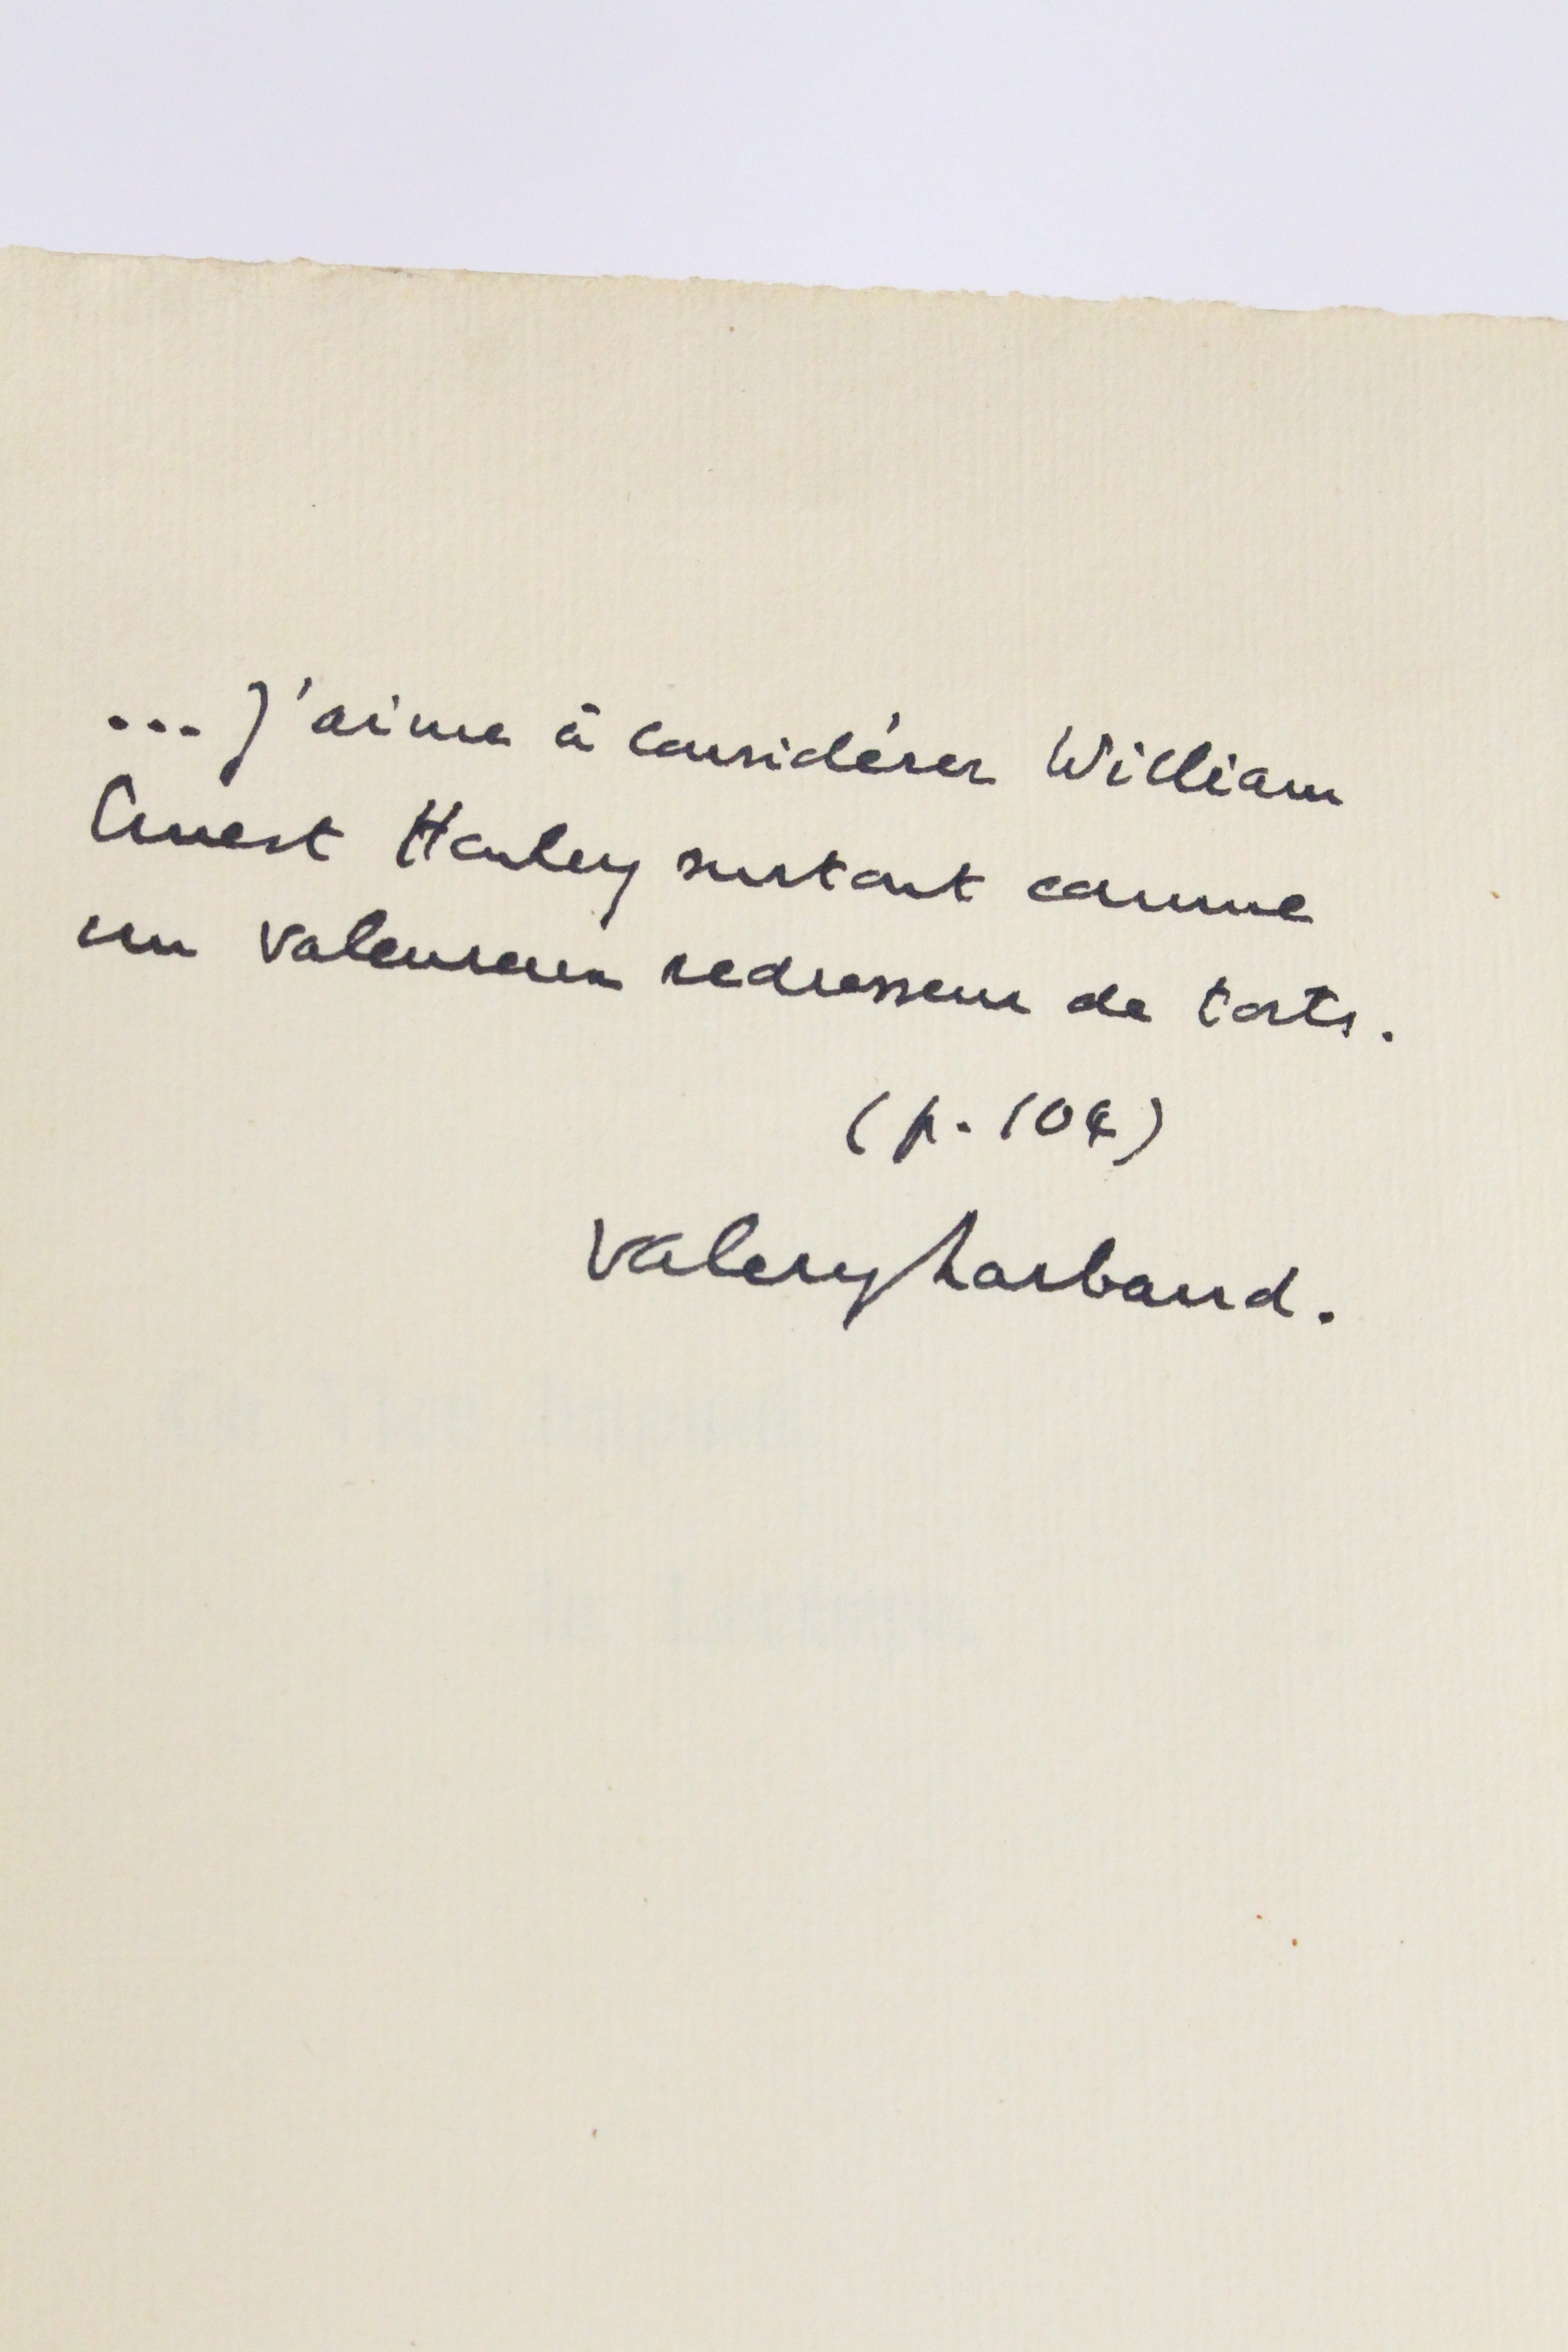 ... J'aime à considérer William
Ernest Henley surtout comme
un valeureux redresseur de torts.
(p. 104)
Valery Larbaud.